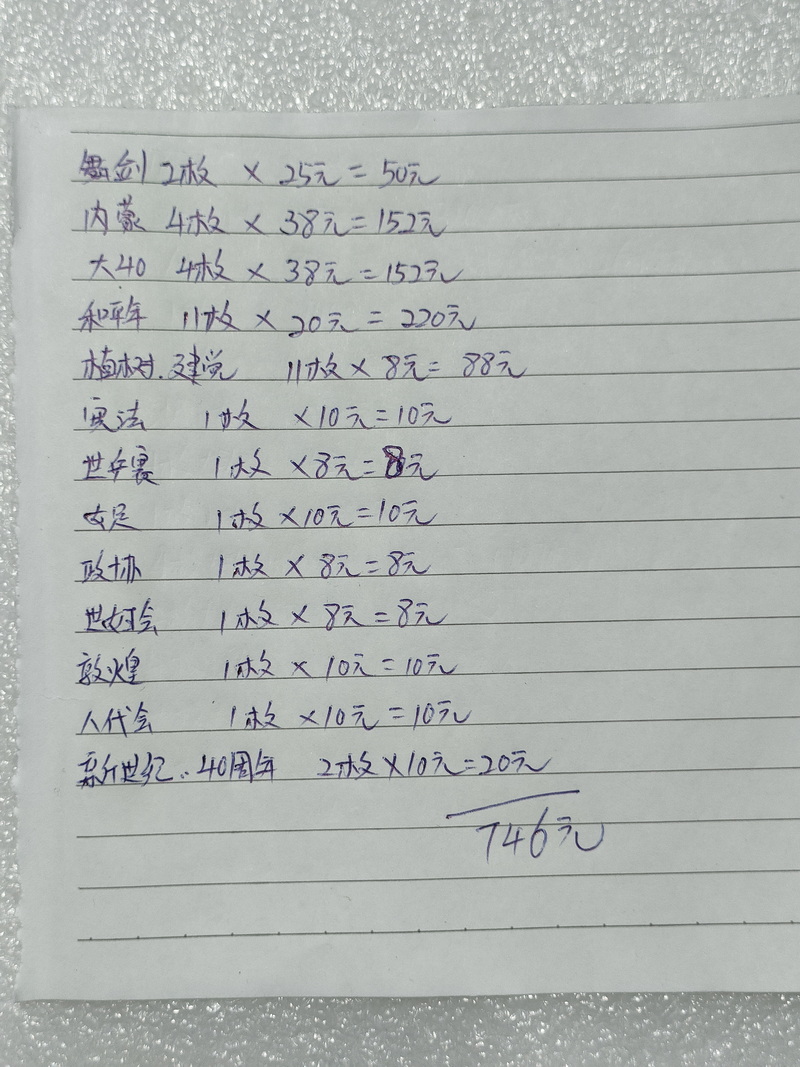 舞剑 2枚 × 25元 = 50元
内蒙 4枚 × 38元 = 152元
大40 4枚 × 38元 = 152元
和平年 11枚 × 20元 = 220元
植树.建党 11枚 × 8元 = 88元
宪法 1枚 ×10元=10元
世乒赛 1枚 ×8元=8元
女足 1枚 ×10元=10元
政协 1枚 × 8元=8元
世妇会 1枚 × 8元=8元
敦煌 1枚 × 10元=10元
人代会 1枚 ×10元=10元
新世纪..40周年 2枚×10元=20元
746元